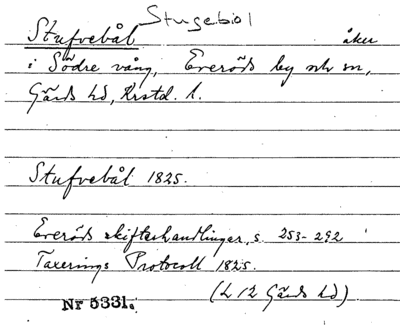 Stugebol
Stufvebål åker
i Södre vång, Everöds by och sn,
Gärds hd, Krstd. l.
Stufvebål 1825.
Everöds skifteshandlingar, s. 253-292
Taxerings Protocoll 1825.
(L 12 Gärds hd)
Nr 5331.